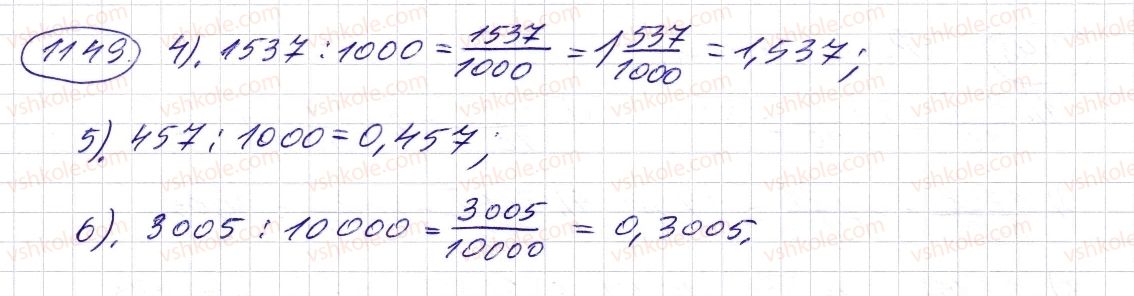 1149. 4). 1537 : 1000 = 1537/1000 = 1 537/1000 = 1,537;
5). 457 : 1000 = 0,457;
6). 3005 : 10000 = 3005/10000 = 0,3005.
vshkole.com